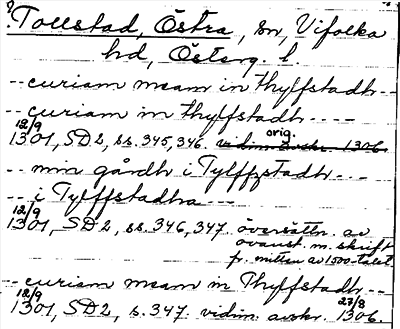 Tollstad, Östra, sn, Vifolka
hd, Österg. l.
-- curiam meam in thylffstadh --
-- curiam in thylffstadh ----
12/9 orig.
1301, SD2, ss. 345, 346. vidim. avskr. 1306.
-- min gårdh i Tylffzstadh --
-- i Tylffstadha --
12/9
1301, SD2, ss. 346, 347. översättn. av
ovanst. m. skrift
fr. mitten av 1500-talet.
-- curiam meam in Thyffstadh --
12/9 27/8
1301, SD2, s. 347. vidim. avskr. 1306.